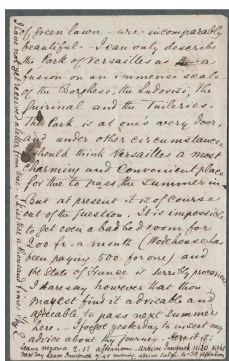 of green lawn - are incomparably
beautiful. I can only describe
the Park of Versailles as a
fusion on an immense scale
of the Borghese, the Ludovisi, the
Quirinal and the Tuileries.
The Park is at one's very door,
and under other circumstances
I should think Versailles a most
charming and convenient place
for thee to pass the summer in.
But at present it is of course
out of the question. It is impossible
to get even a bad bedroom for
200 fr. a month (Wodehouse has
been paying 500 for one) and
the state of France is terribly precarious.
I dare say however that thou
mayest find it advisable and
agreeable to pass next summer
here. - I forgot yesterday to insert my
advice about thy journey. Here it is
leave 2.15 afternoon. Arrive Innsbruck night
next day leave Innsbruck 7.45 morning, arrive 4.30 afternoon
I have not yet received a letter from thee. I kiss thee a thousand times.